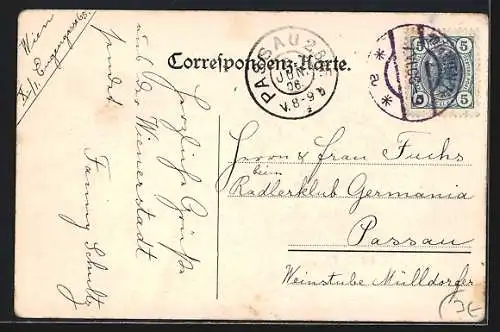 Wien
X/1. Eugengasse 65.
Correspondenz-Karte.
PASSAU 2
JUN.
06
V. 8-9
5 5
5 5
Herzliche Grüße
aus der Wienerstadt
sendet
Fanny Schultz
Herrn & Frau Fuchs
beim
Radlerklub Germania
Passau
Weinstube Mülldorfer